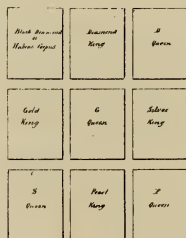 Black Diamond
or
Habeas Corpus
Diamond
King
D
Queen
Gold
King
G
Queen
Silver
King
S
Queen
Pearl
King
P
Queen